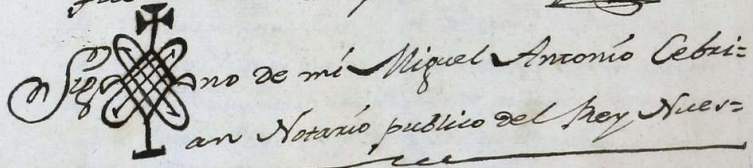 Sig no de mí Miguel Antonio Cebri=
an Notario publico del Rey Nues=